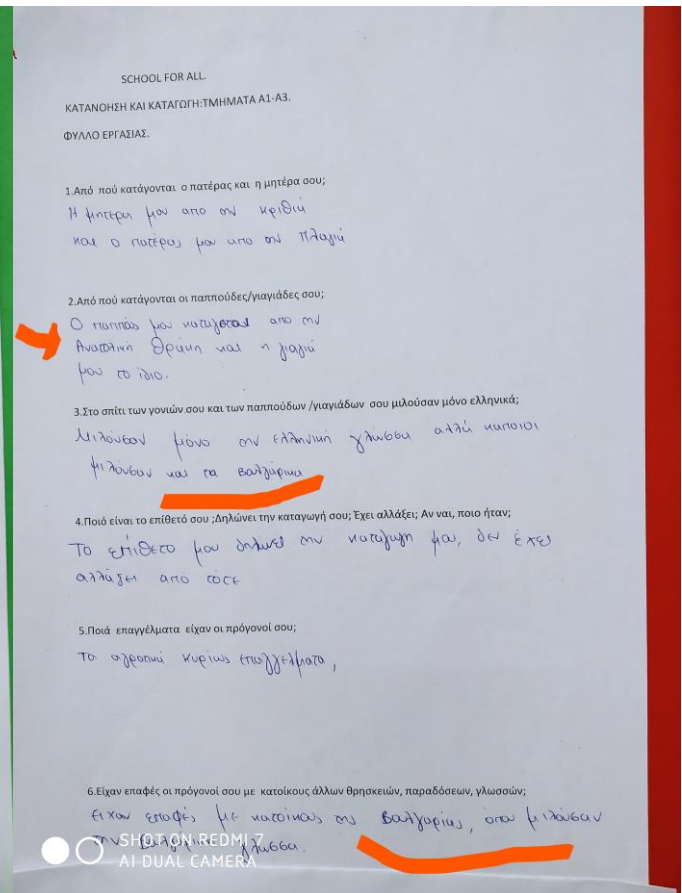 SCHOOL FOR ALL.
ΚΑΤΑΝΟΗΣΗ ΚΑΙ ΚΑΤΑΓΩΓΗ:ΤΜΗΜΑΤΑ Α1-Α3.
ΦΥΛΛΟ ΕΡΓΑΣΙΑΣ.
1.Από πού κατάγονται ο πατέρας και η μητέρα σου;
Η μητέρα μου απο την κριθιά
και ο πατέρας μου απο την Πλαγιά
2.Από πού κατάγονται οι παππούδες/γιαγιάδες σου;
Ο παππάς μου κατάγεται απο την
Ανατολική Θράκη και η γιαγιά
μου το ίδιο.
3.Στο σπίτι των γονιών σου και των παππούδων /γιαγιάδων σου μιλούσαν μόνο ελληνικά;
Μιλούσαν μόνο την ελληνική γλώσσα αλλά κάποιοι
μιλούσαν και τα βαλγάρικα
4.Ποιό είναι το επίθετό σου ;Δηλώνει την καταγωγή σου; Έχει αλλάξει; Αν ναι, ποιο ήταν;
Το επίθετο μου δηλωνει την καταγωγη μου, δεν έχει
αλλάξει από τότε
5.Ποιά επαγγέλματα είχαν οι πρόγονοί σου;
Τα αγροτικά κυρίως επαγγέλματα,
6.Είχαν επαφές οι πρόγονοί σου με κατοίκους άλλων θρησκειών, παραδόσεων, γλωσσών;
Είχαν επαφές με κατοίκους της Βαλγαρίας, όπου μιλούσαν
την γλώσσα.
SHOT ON REDMI 7
AI DUAL CAMERA